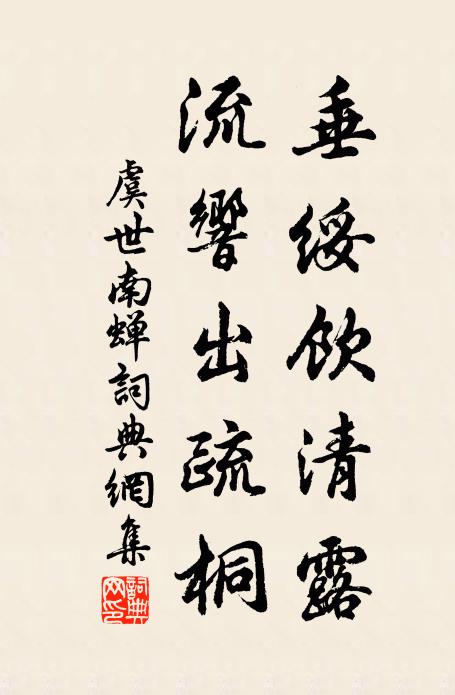 垂緌飲清露
流響出疏桐
虞世南蟬詞典網集
詞典网印